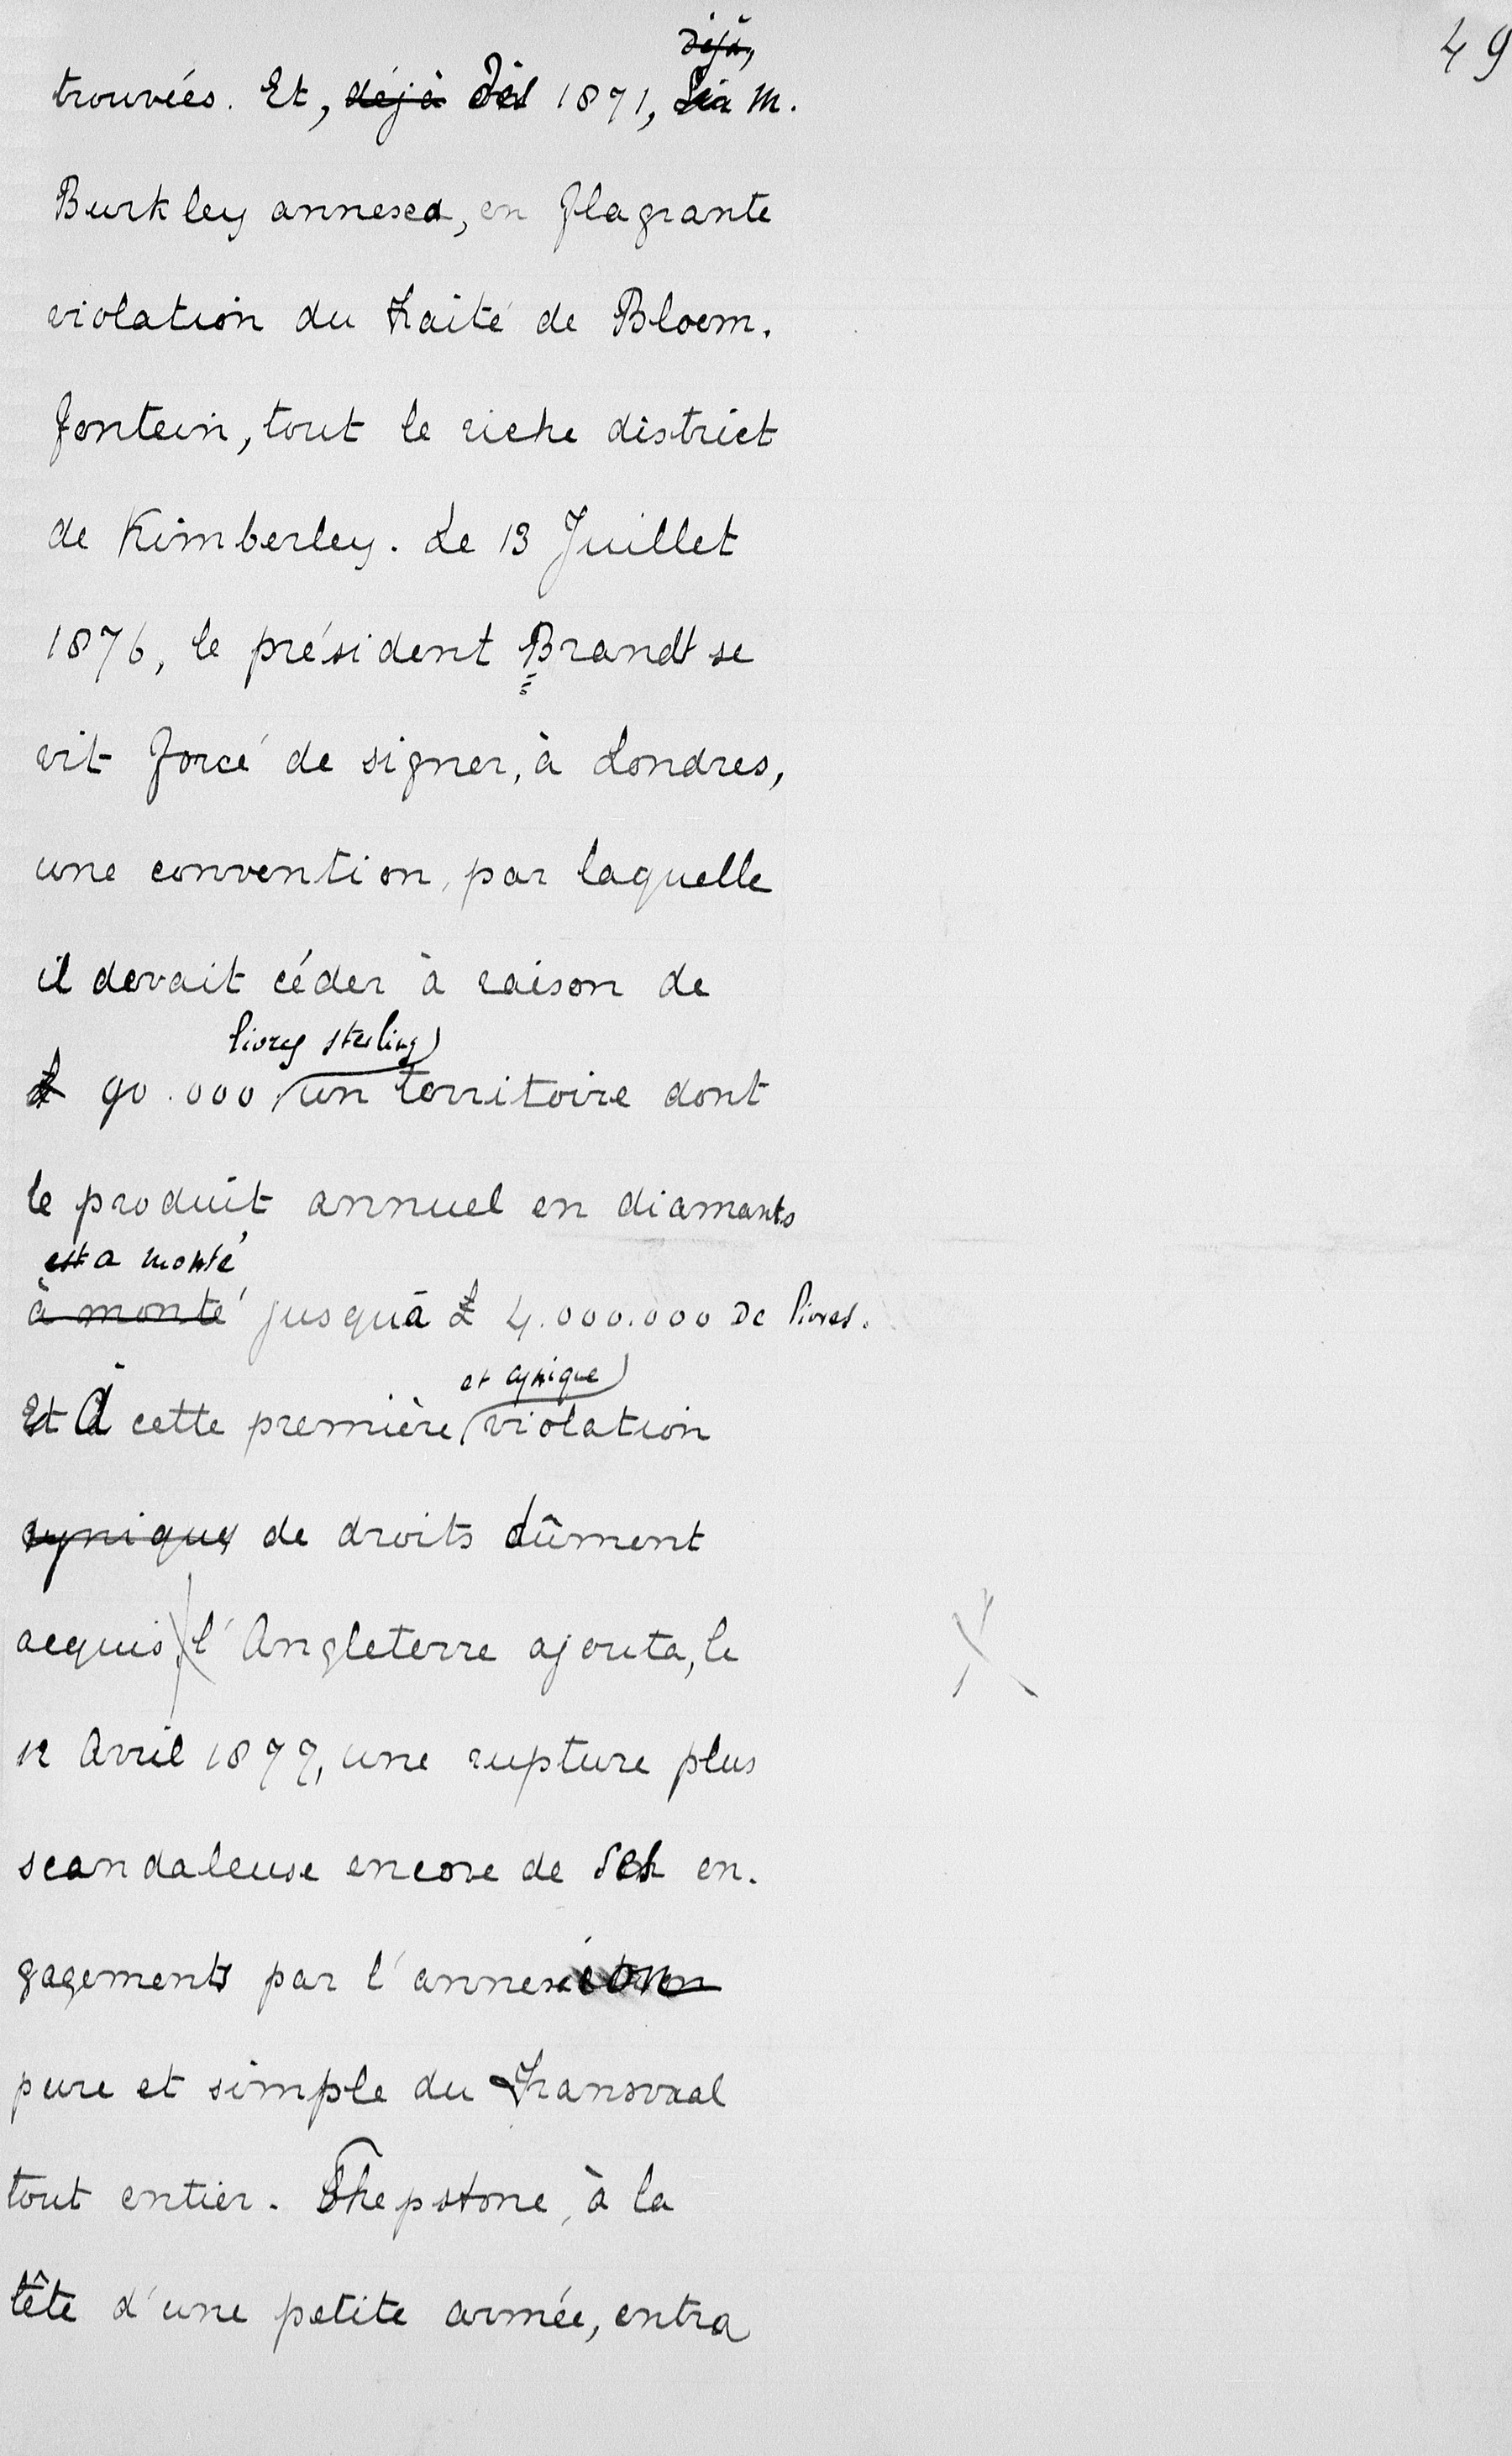 49
déjà,
trouvées. Et, déjà dès 1871, M.
Burkley annexa, en flagrante
violation du traité de Bloem.
fontein, tout le riche district
de Kimberley. Le 13 Juillet
1876, le président Brandt se
vit forcé de signer, à Londres,
une convention, par laquelle
il devait céder à raison de
livres sterling
£ 90.000 un territoire dont
le produit annuel en diamants
est a monté
à monté jusqu'à £ 4.000.000 de livres.
et cynique
Et à cette première violation
cynique de droits dûment
acquis, l'Angleterre ajouta, le
12 Avril 1877, une rupture plus
scandaleuse encore de ses en.
gagements par l'annexion
pure et simple du Transvaal
tout entier. Shepstone, à la
tête d'une petite armée, entra